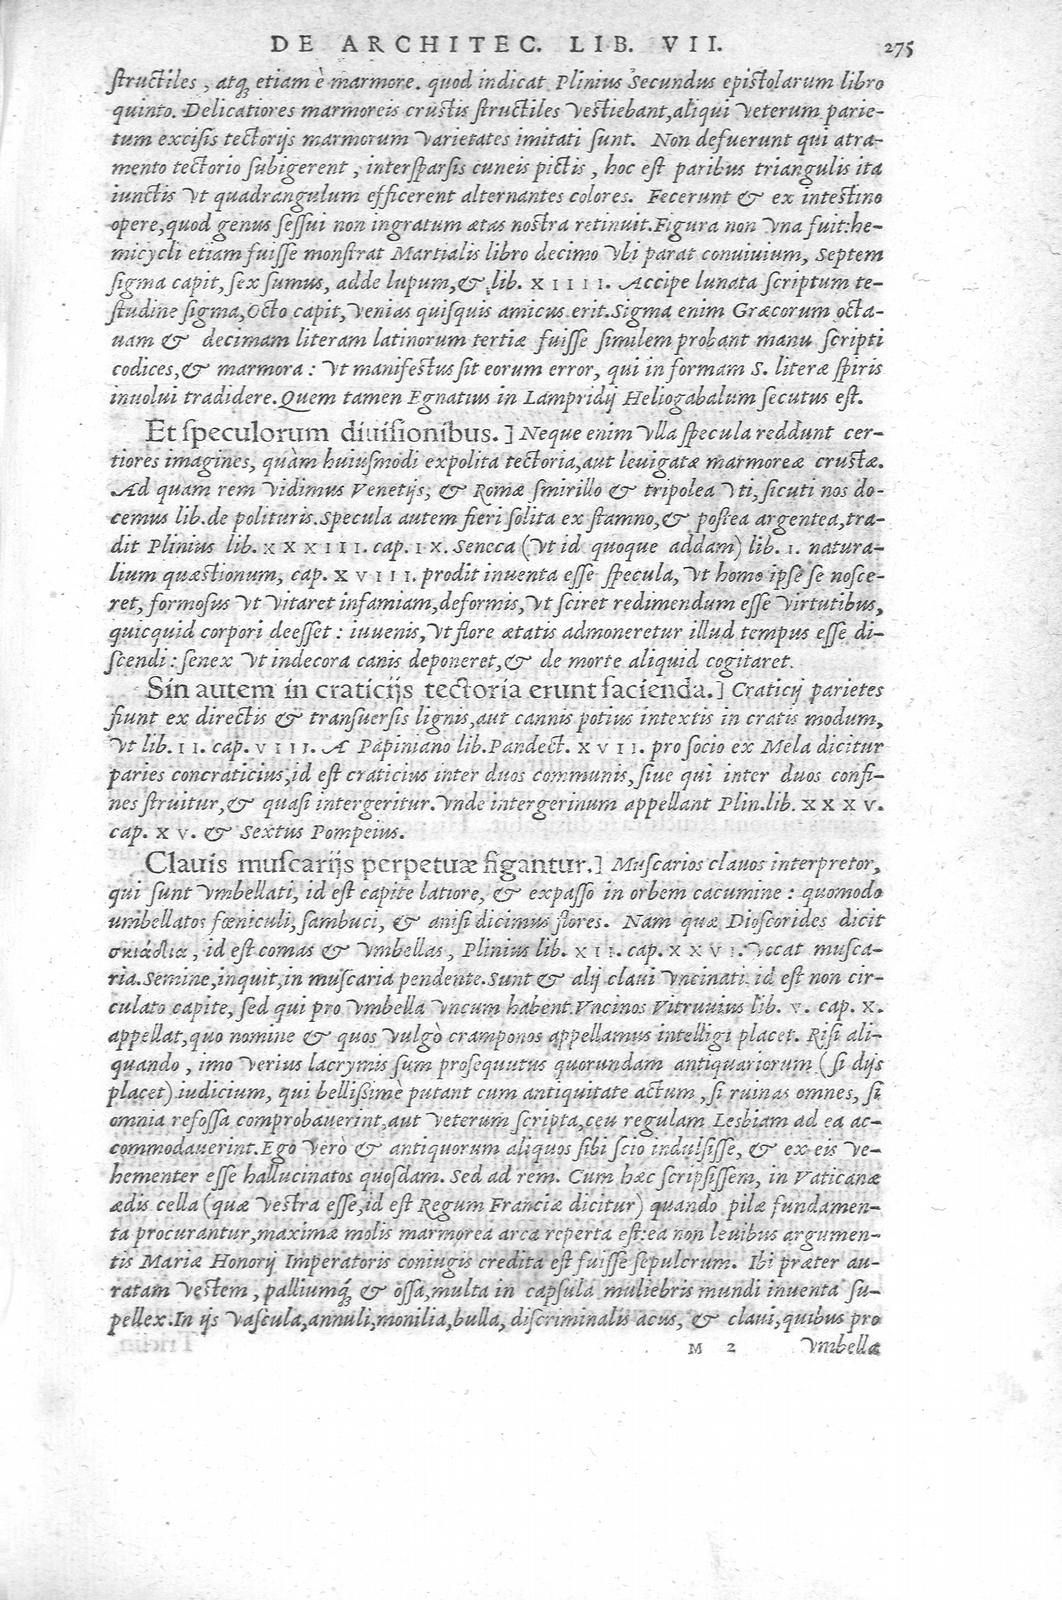 DE ARCHITEC. LIB. VII. 275
structiles, atq; etiam è marmore. quod indicat Plinius Secundus epistolarum libro
quinto. Delicatiores marmoreis crustis structiles vestiebant, aliqui veterum parie-
tum excisis tectorijs marmorum varietates imitati sunt. Non defuerunt qui atra-
mento tectorio subigerent, intersparsis cuneis pictis, hoc est paribus triangulis ita
iunctis vt quadrangulum efficerent alternantes colores. Fecerunt & ex intestino
opere, quod genus sessui non ingratum ætas nostra retinuit. Figura non vna fuit: he-
micycli etiam fuisse monstrat Martialis libro decimo vbi parat conuiuium, Septem
sigma capit, sex sumus, adde lupum, & lib. XIIII. Accipe lunata scriptum te-
studine sigma, Octo capit, venias quisquis amicus erit. Sigma enim Græcorum octa-
uam & decimam literam latinorum tertiæ fuisse similem probant manu scripti
codices, & marmora: vt manifestus sit eorum error, qui in formam S. literæ spiris
inuolui tradidere. Quem tamen Egnatius in Lampridij Heliogabalum secutus est.
Et speculorum diuisionibus.] Neque enim vlla specula reddunt cer-
tiores imagines, quàm huiusmodi expolita tectoria, aut leuigatæ marmoreæ crustæ.
Ad quam rem vidimus Venetijs, & Romæ smirillo & tripolea vti, sicuti nos do-
cemus lib. de polituris. Specula autem fieri solita ex stamno, & postea argentea, tra-
dit Plinius lib. XXXIII. cap. IX. Seneca (vt id quoque addam) lib. I. natura-
lium quæstionum, cap. XVIII. prodit inuenta esse specula, vt homo ipse se nosce-
ret, formosus vt vitaret infamiam, deformis, vt sciret redimendum esse virtutibus,
quicquid corpori deesset: iuuenis, vt flore ætatis admoneretur illud tempus esse di-
scendi: senex vt indecora canis deponeret, & de morte aliquid cogitaret.
Sin autem in craticijs tectoria erunt facienda.] Craticij parietes
fiunt ex directis & transuersis lignis, aut cannis potius intextis in cratis modum,
vt lib. II. cap. VIII. A Papiniano lib. Pandect. XVII. pro socio ex Mela dicitur
paries concraticius, id est craticius inter duos communis, siue qui inter duos confi-
nes struitur, & quasi intergeritur. Vnde intergerinum appellant Plin. lib. XXXV.
cap. XV. & Sextus Pompeius.
Clauis muscarijs perpetuæ figantur.] Muscarios clauos interpretor,
qui sunt vmbellati, id est capite latiore, & expasso in orbem cacumine: quomodo
umbellatos fœniculi, sambuci, & anisi dicimus flores. Nam quæ Dioscorides dicit
σκιάδια, id est comas & vmbellas, Plinius lib. XII. cap. XXVI. vocat musca-
ria. Semine, inquit, in muscaria pendente. Sunt & alij claui vncinati. id est non cir-
culato capite, sed qui pro vmbella vncum habent. Vncinos Vitruuius lib. V. cap. X.
appellat, quo nomine & quos vulgò cramponos appellamus intelligi placet. Risi ali-
quando, imo verius lacrymis sum prosequutus quorundam antiquariorum (si dijs
placet) iudicium, qui bellissimè putant cum antiquitate actum, si ruinas omnes, si
omnia refossa comprobauerint, aut veterum scripta, ceu regulam Lesbiam ad ea ac-
commodauerint. Ego verò & antiquorum aliquos sibi scio indulsisse, & ex eis ve-
hementer esse hallucinatos quosdam. Sed ad rem. Cum hæc scripsissem, in Vaticanæ
ædis cella (quæ vestra esse, id est Regum Franciæ dicitur) quando pilæ fundamen-
ta procurantur, maximæ molis marmorea arca reperta est: ea non leuibus argumen-
tis Mariæ Honorij Imperatoris coniugis credita est fuisse sepulcrum. Ibi præter au-
ratam vestem, palliumq́; & ossa, multa in capsula muliebris mundi inuenta su-
pellex. In ijs vascula, annuli, monilia, bulla, discriminalis acus, & claui, quibus pro
M 2 vmbella